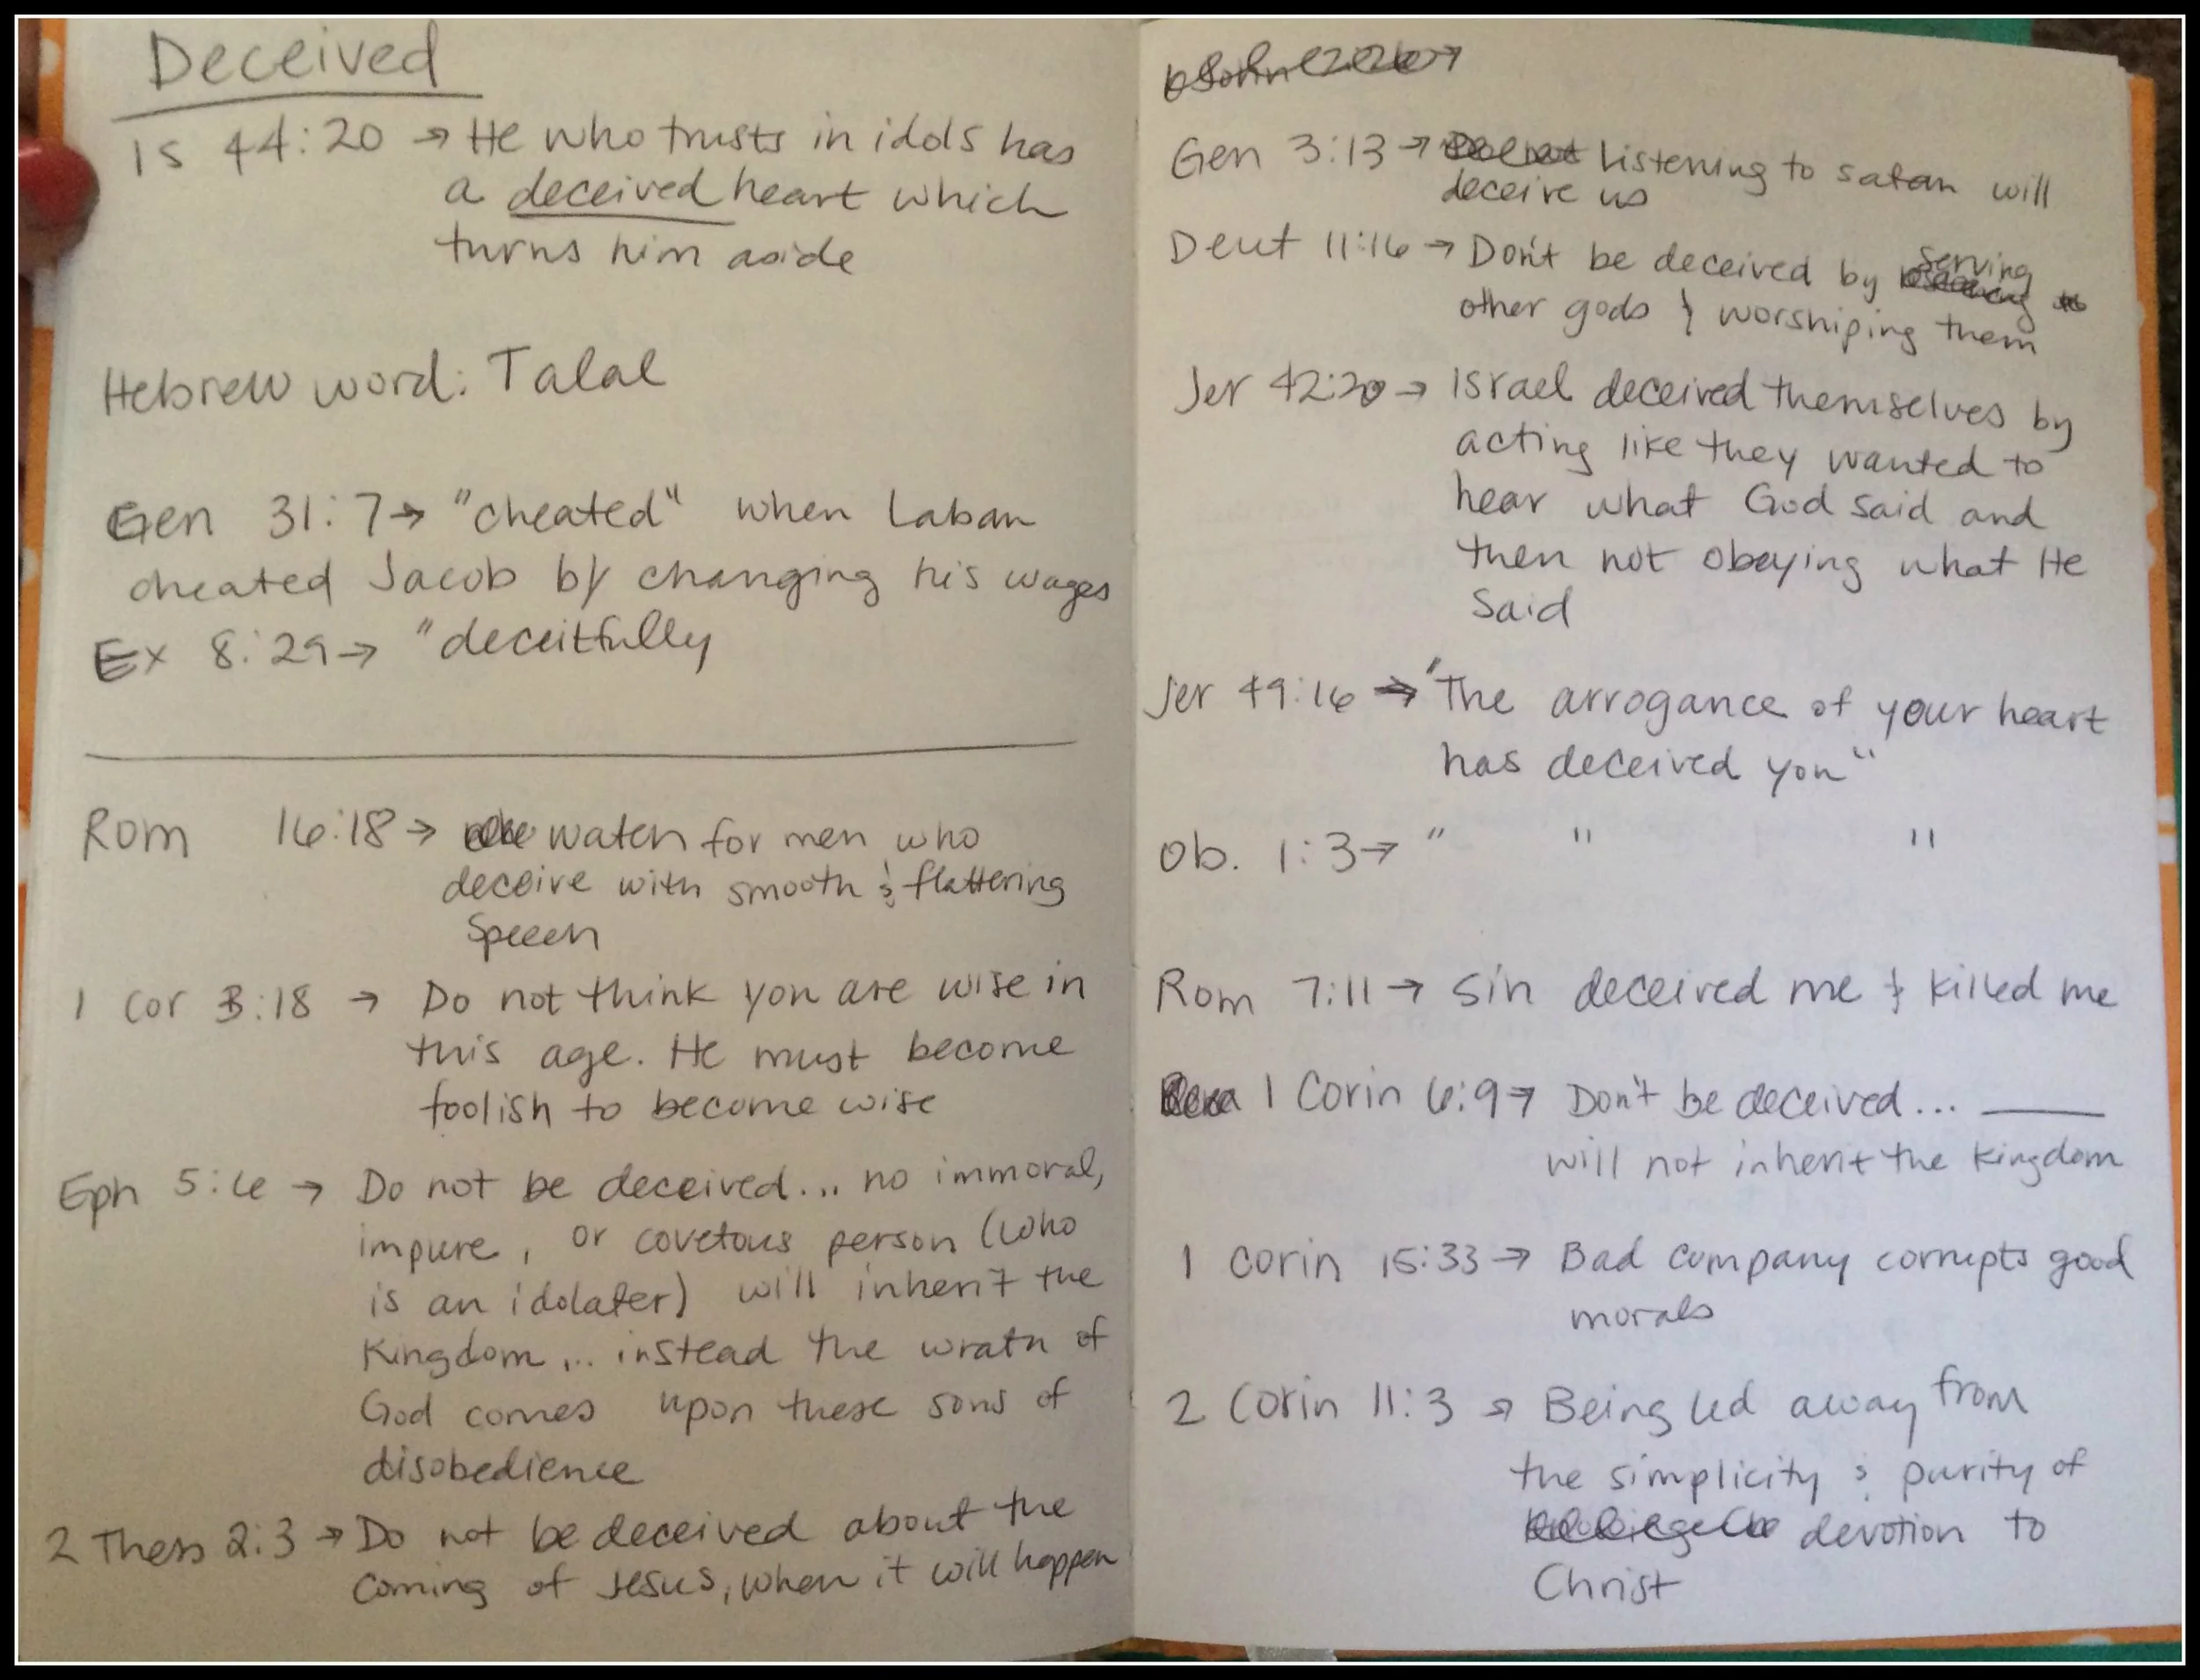 Deceived
Is 44:20 → He who trusts in idols has
a deceived heart which
turns him aside
Hebrew word: Talal
Gen 31:7 → "cheated" when Laban
cheated Jacob by changing his wages
Ex 8:29 → "deceitfully
Rom 16:18 → watch for men who
deceive with smooth & flattering
speech
1 Cor 3:18 → Do not think you are wise in
this age. He must become
foolish to become wise
Eph 5:6 → Do not be deceived... no immoral,
impure, or covetous person (who
is an idolater) will inherit the
Kingdom... instead the wrath of
God comes upon these sons of
disobedience
2 Thess 2:3 → Do not be deceived about the
coming of Jesus, when it will happen
Gen 3:13 → listening to satan will
deceive us
Deut 11:16 → Don't be deceived by serving
other gods & worshiping them
Jer 42:20 → Israel deceived themselves by
acting like they wanted to
hear what God said and
then not obeying what He
said
Jer 49:16 → "The arrogance of your heart
has deceived you"
Ob. 1:3 → " " "
Rom 7:11 → sin deceived me & killed me
1 Corin 6:9 → Don't be deceived... ____
will not inherit the kingdom
1 Corin 15:33 → Bad company corrupts good
morals
2 Corin 11:3 → Being led away from
the simplicity & purity of
devotion to
Christ